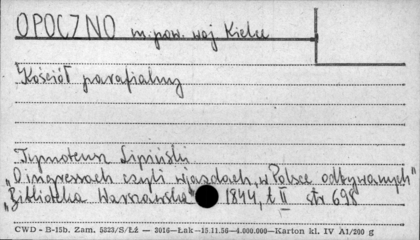 OPOCZNO m. pow. woj Kielce
Kościół parafialny
Tymoteusz Lipiński
"O ingressach czyli wjazdach, w Polsce odbywanych"
"Biblioteka Warszawska" 1844, t II str 698
CWD - B-15b. Zam. 5323/S/Łź — 3016—Łak—15.11.56—4.000.000—Karton kl. IV A1/200 g